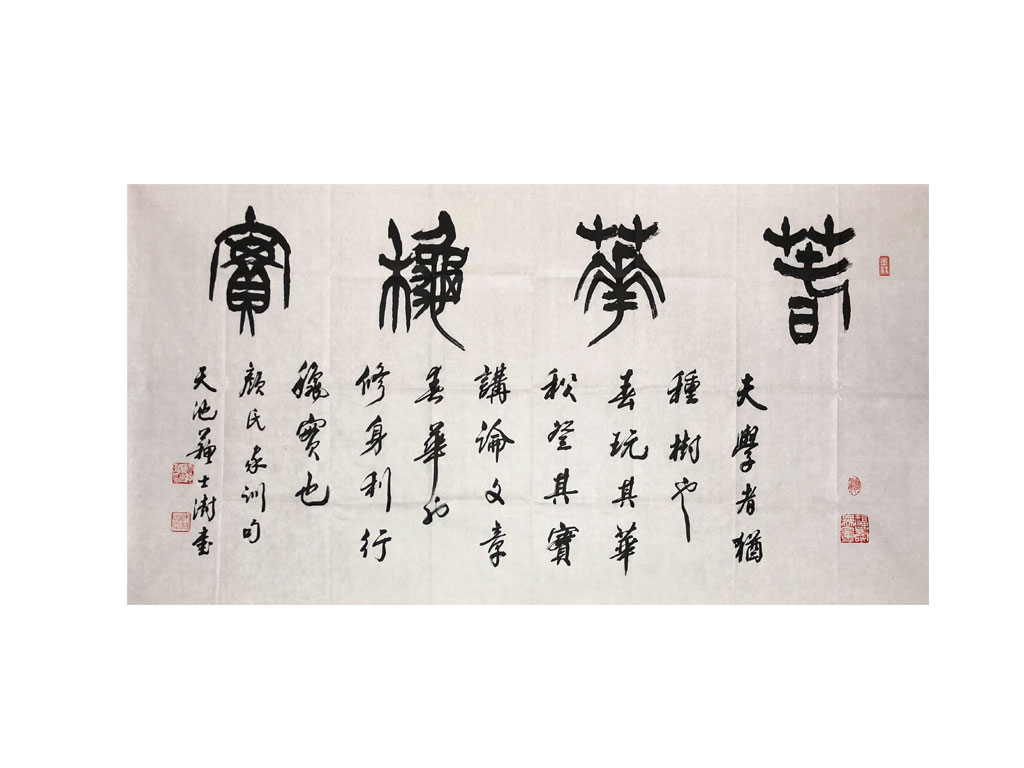 萅華龝實
夫學者猶
種樹也
春玩其華
秋登其實
講論文章
春華也
修身利行
龝實也
顏氏家訓句
天池蘇士澍書